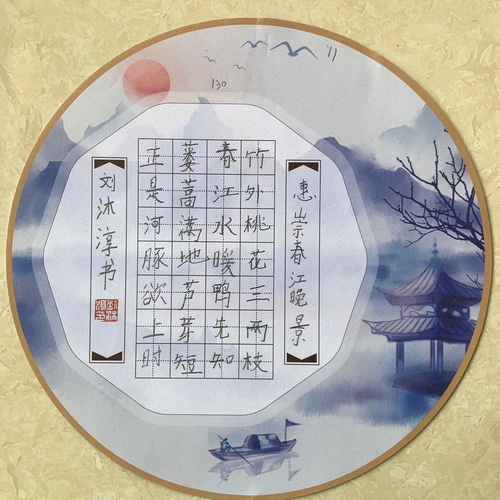 惠崇春江晚景
竹外桃花三两枝
春江水暖鸭先知
蒌蒿满地芦芽短
正是河豚欲上时
刘沐淳书
130